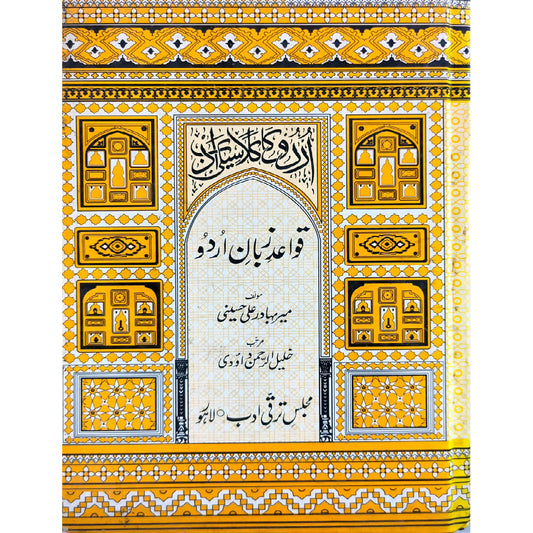 اردو کا کلاسیکی ادب
قواعدِ زبانِ اردو
مولف
میر بہادر علی حسینی
مرتب
خلیل الرحمٰن داؤدی
مجلس ترقی ادب ○ لاہور